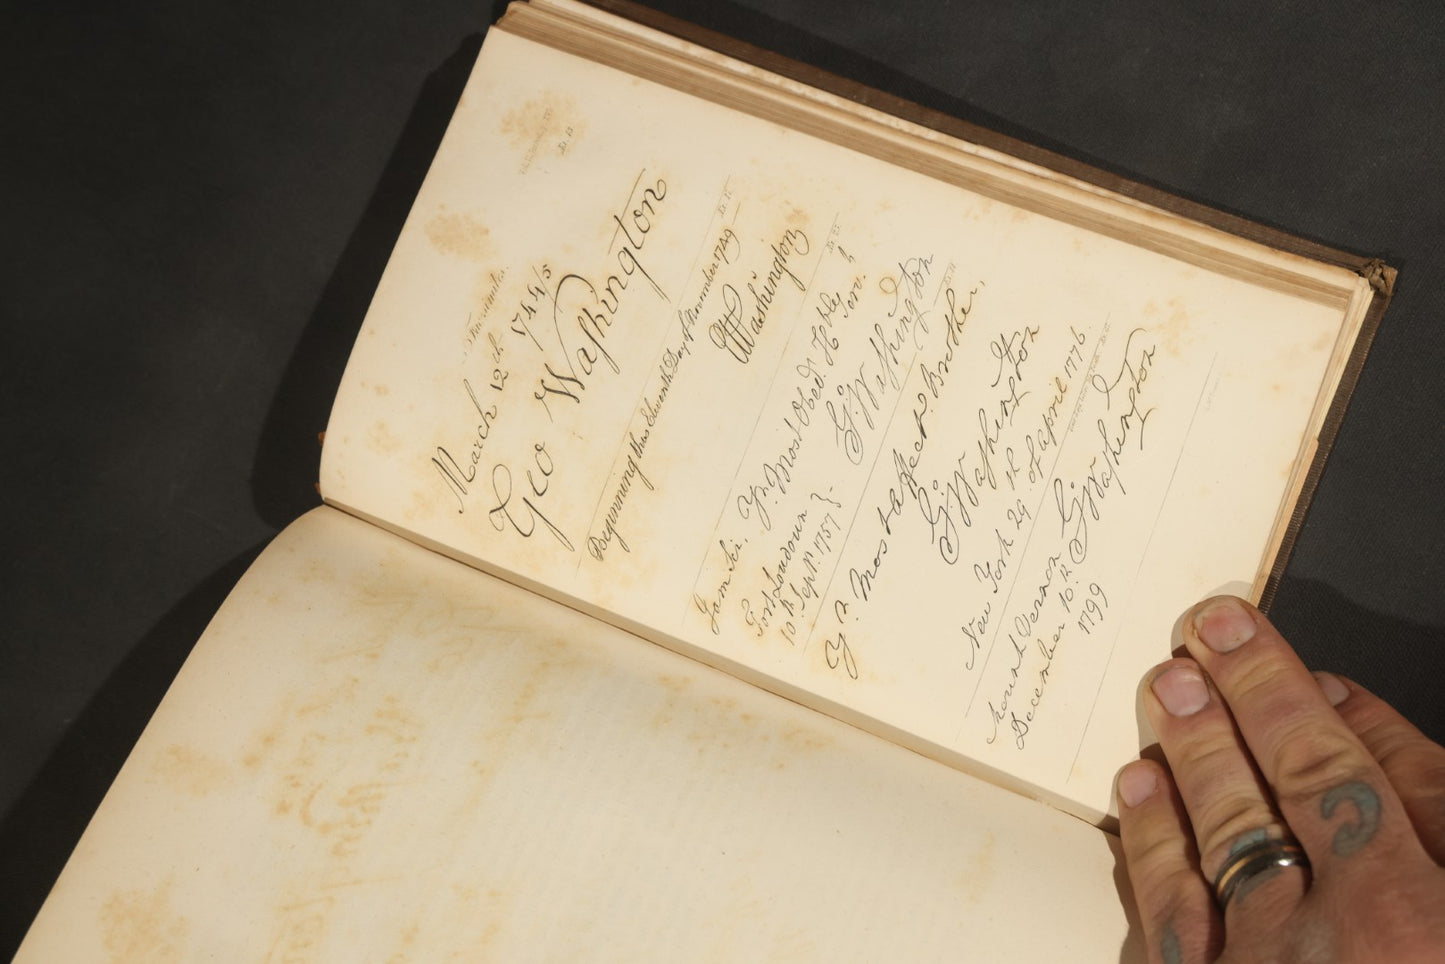 Facsimiles.
March 12th 1744/5
Geo Washington
Beginning this Eleventh Day of November 1749
GWashington
I am Sir,
Yr. Most Obed. Hble
Serv.
Fort Loudoun
10th Septr. 1757
G:Washington
Yr. most affect. Brother,
G:Washington
New York 29th of april 1776.
Mount Vernon
December 10th
1799
G:Washington